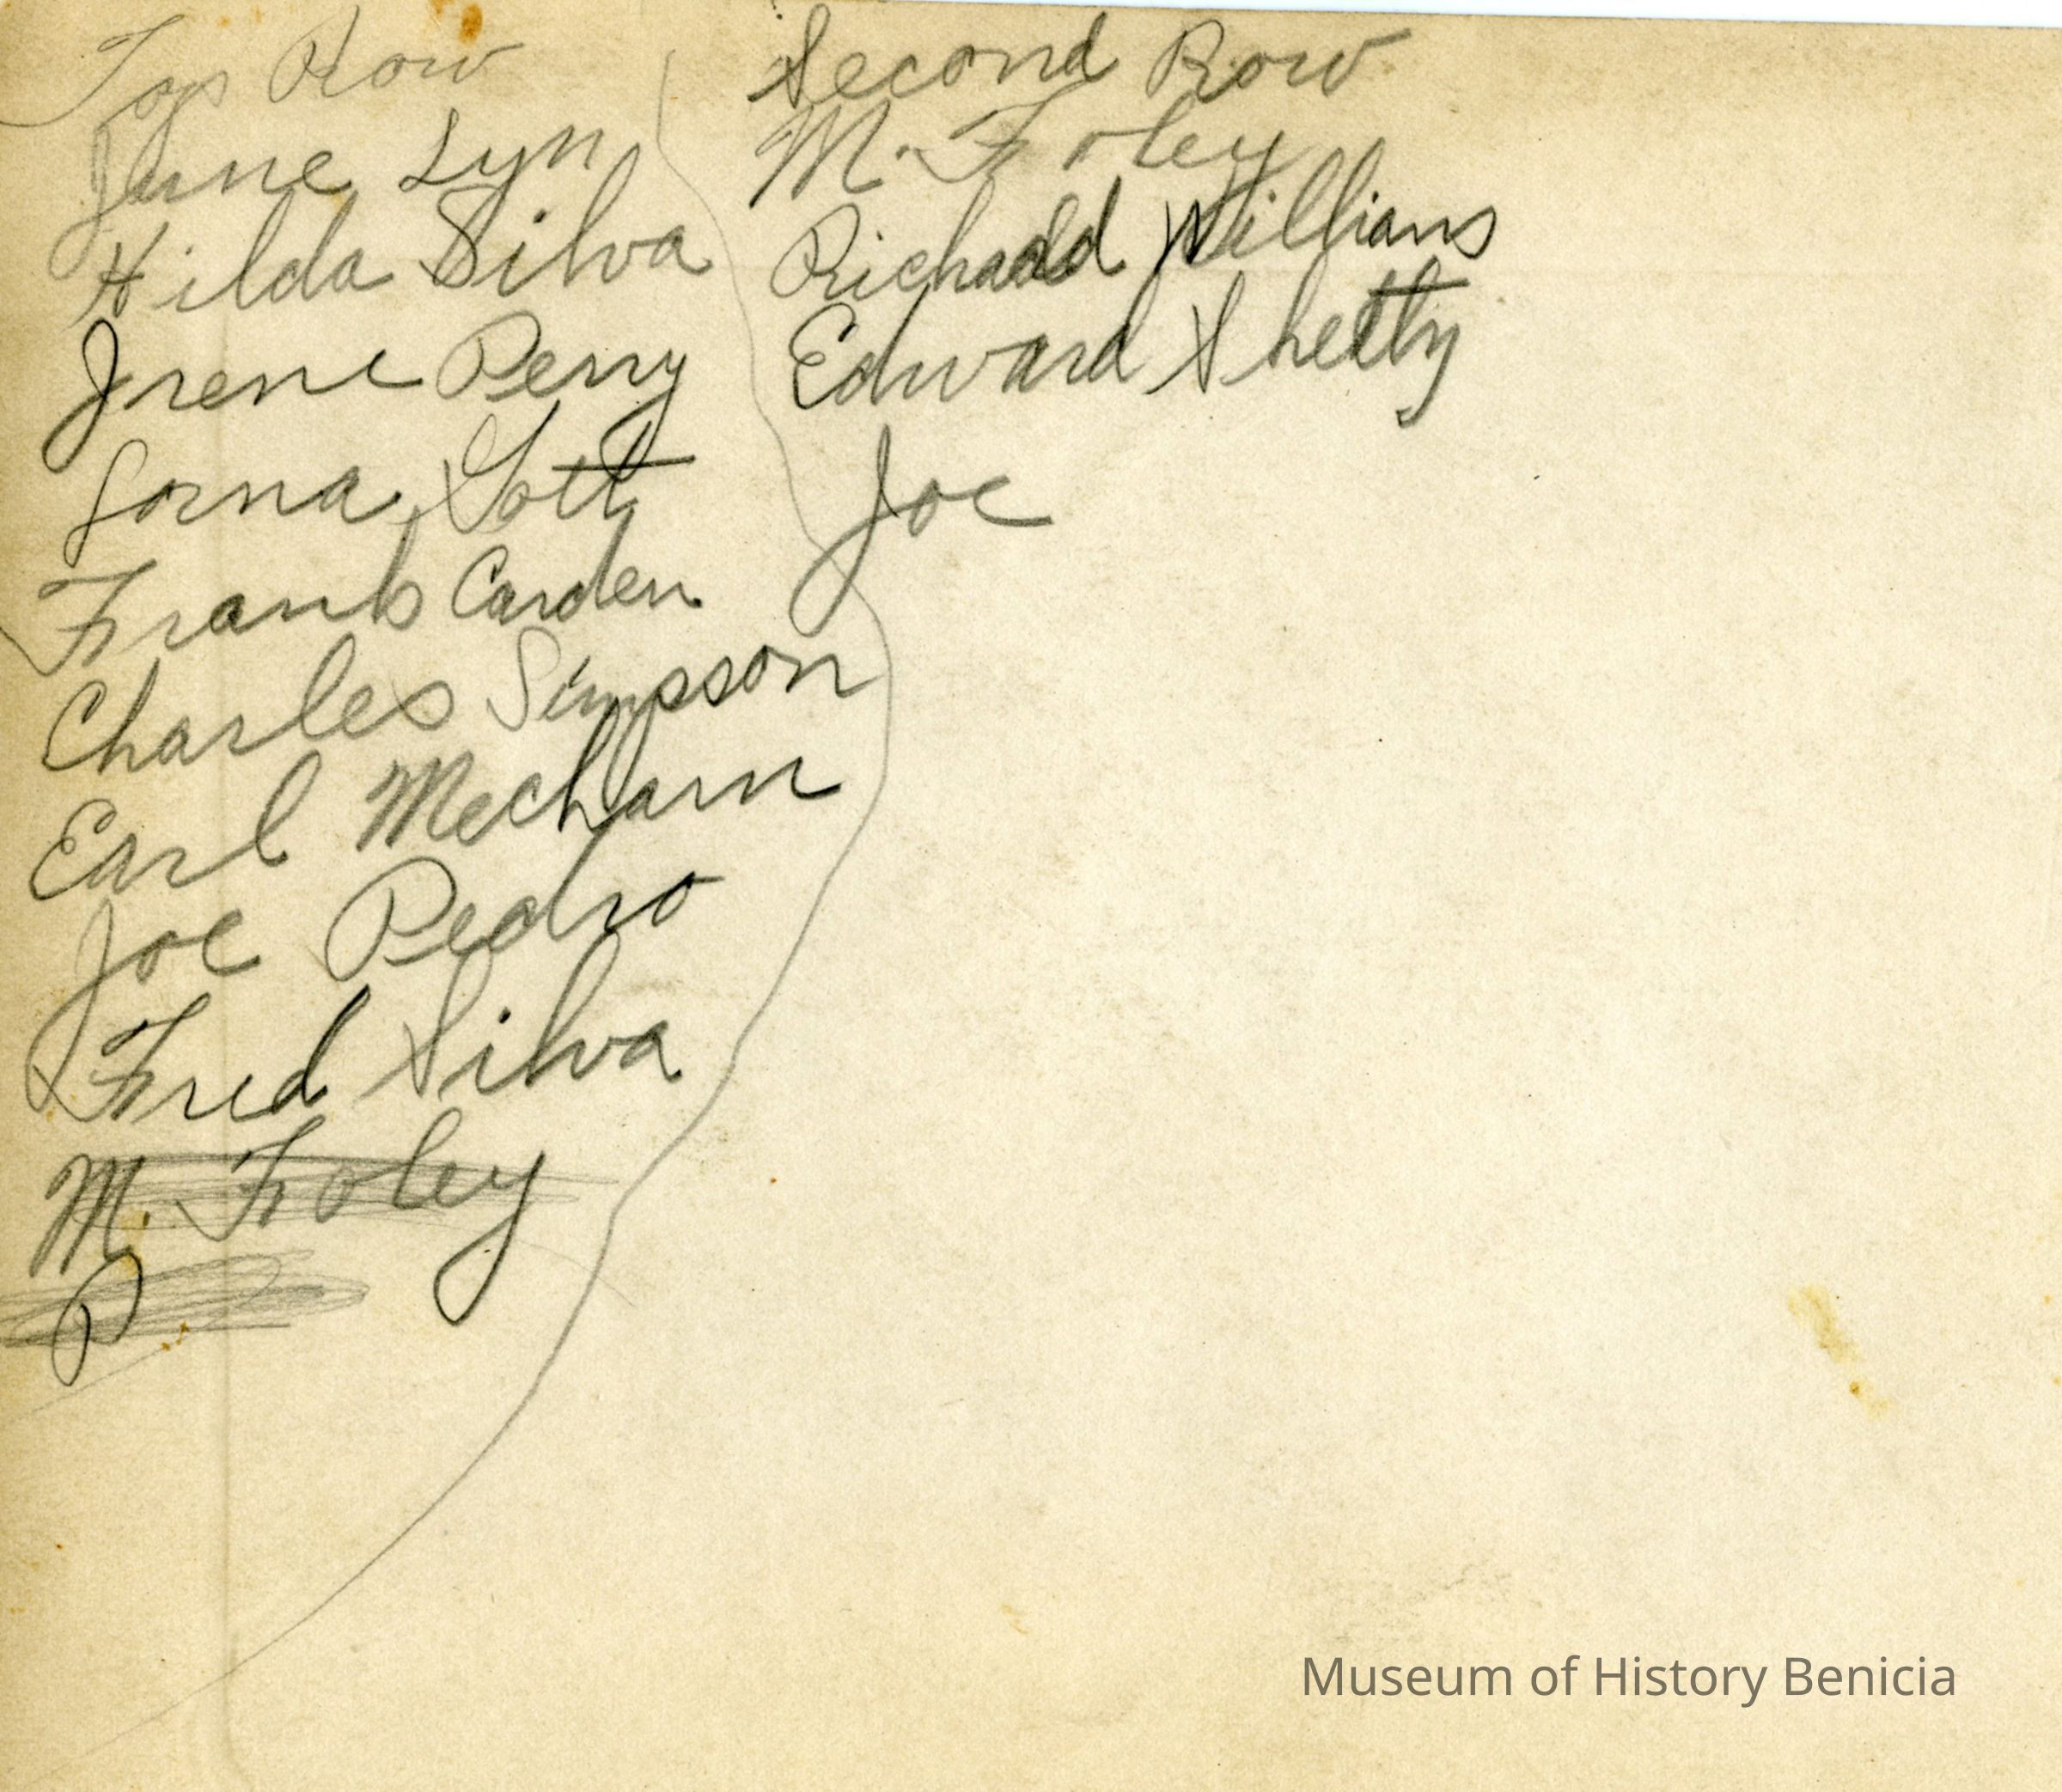 Top Row
June Lyn
Hilda Silva
Irene Perry
Lorna Gott
Frank Carden
Charles Simpson
Earl Mecham
Joe Pedro
Fred Silva
M. Foley
P
Second Row
M. Foley
Richard Willians
Edward Shetty
Joe
Museum of History Benicia